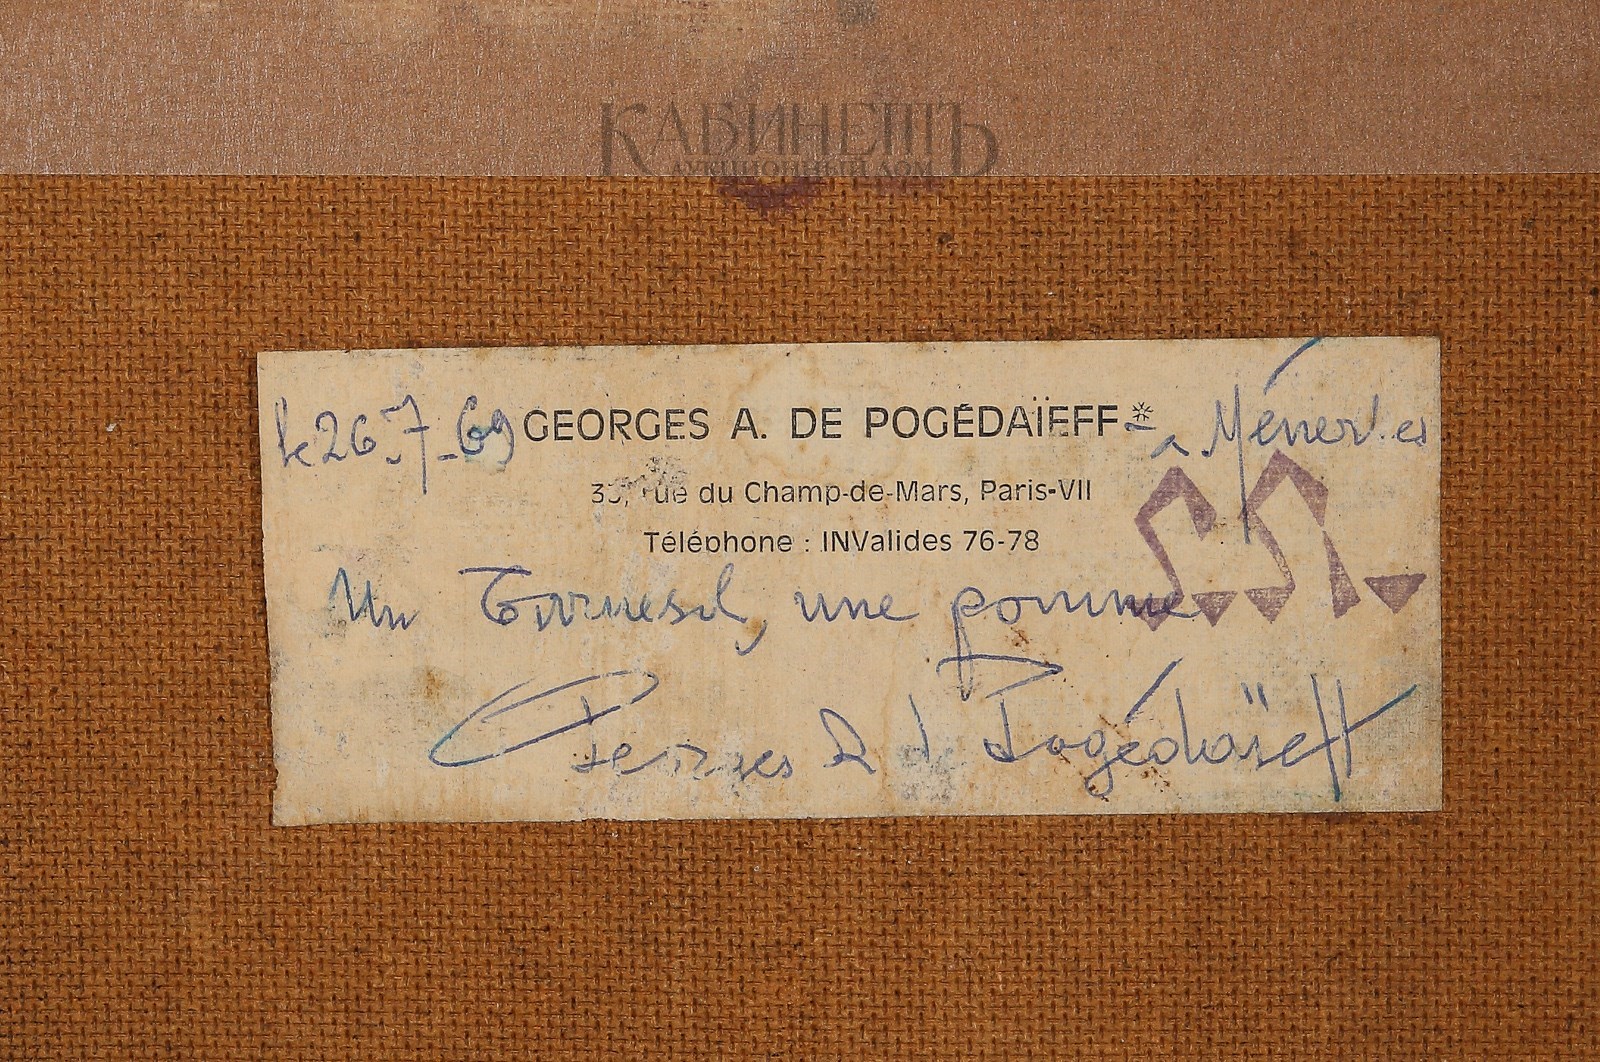 КАБИНЕТЪ
АУКЦИОННЫЙ ДОМ
le 26.7_69 GEORGES A. DE POGÉDAÏEFF* a Ménerbes
rue du Champ-de-Mars, Paris-VII
Téléphone : INValides 76-78
Un Tournesol, une pomme
Georges A d Pogédaïeff